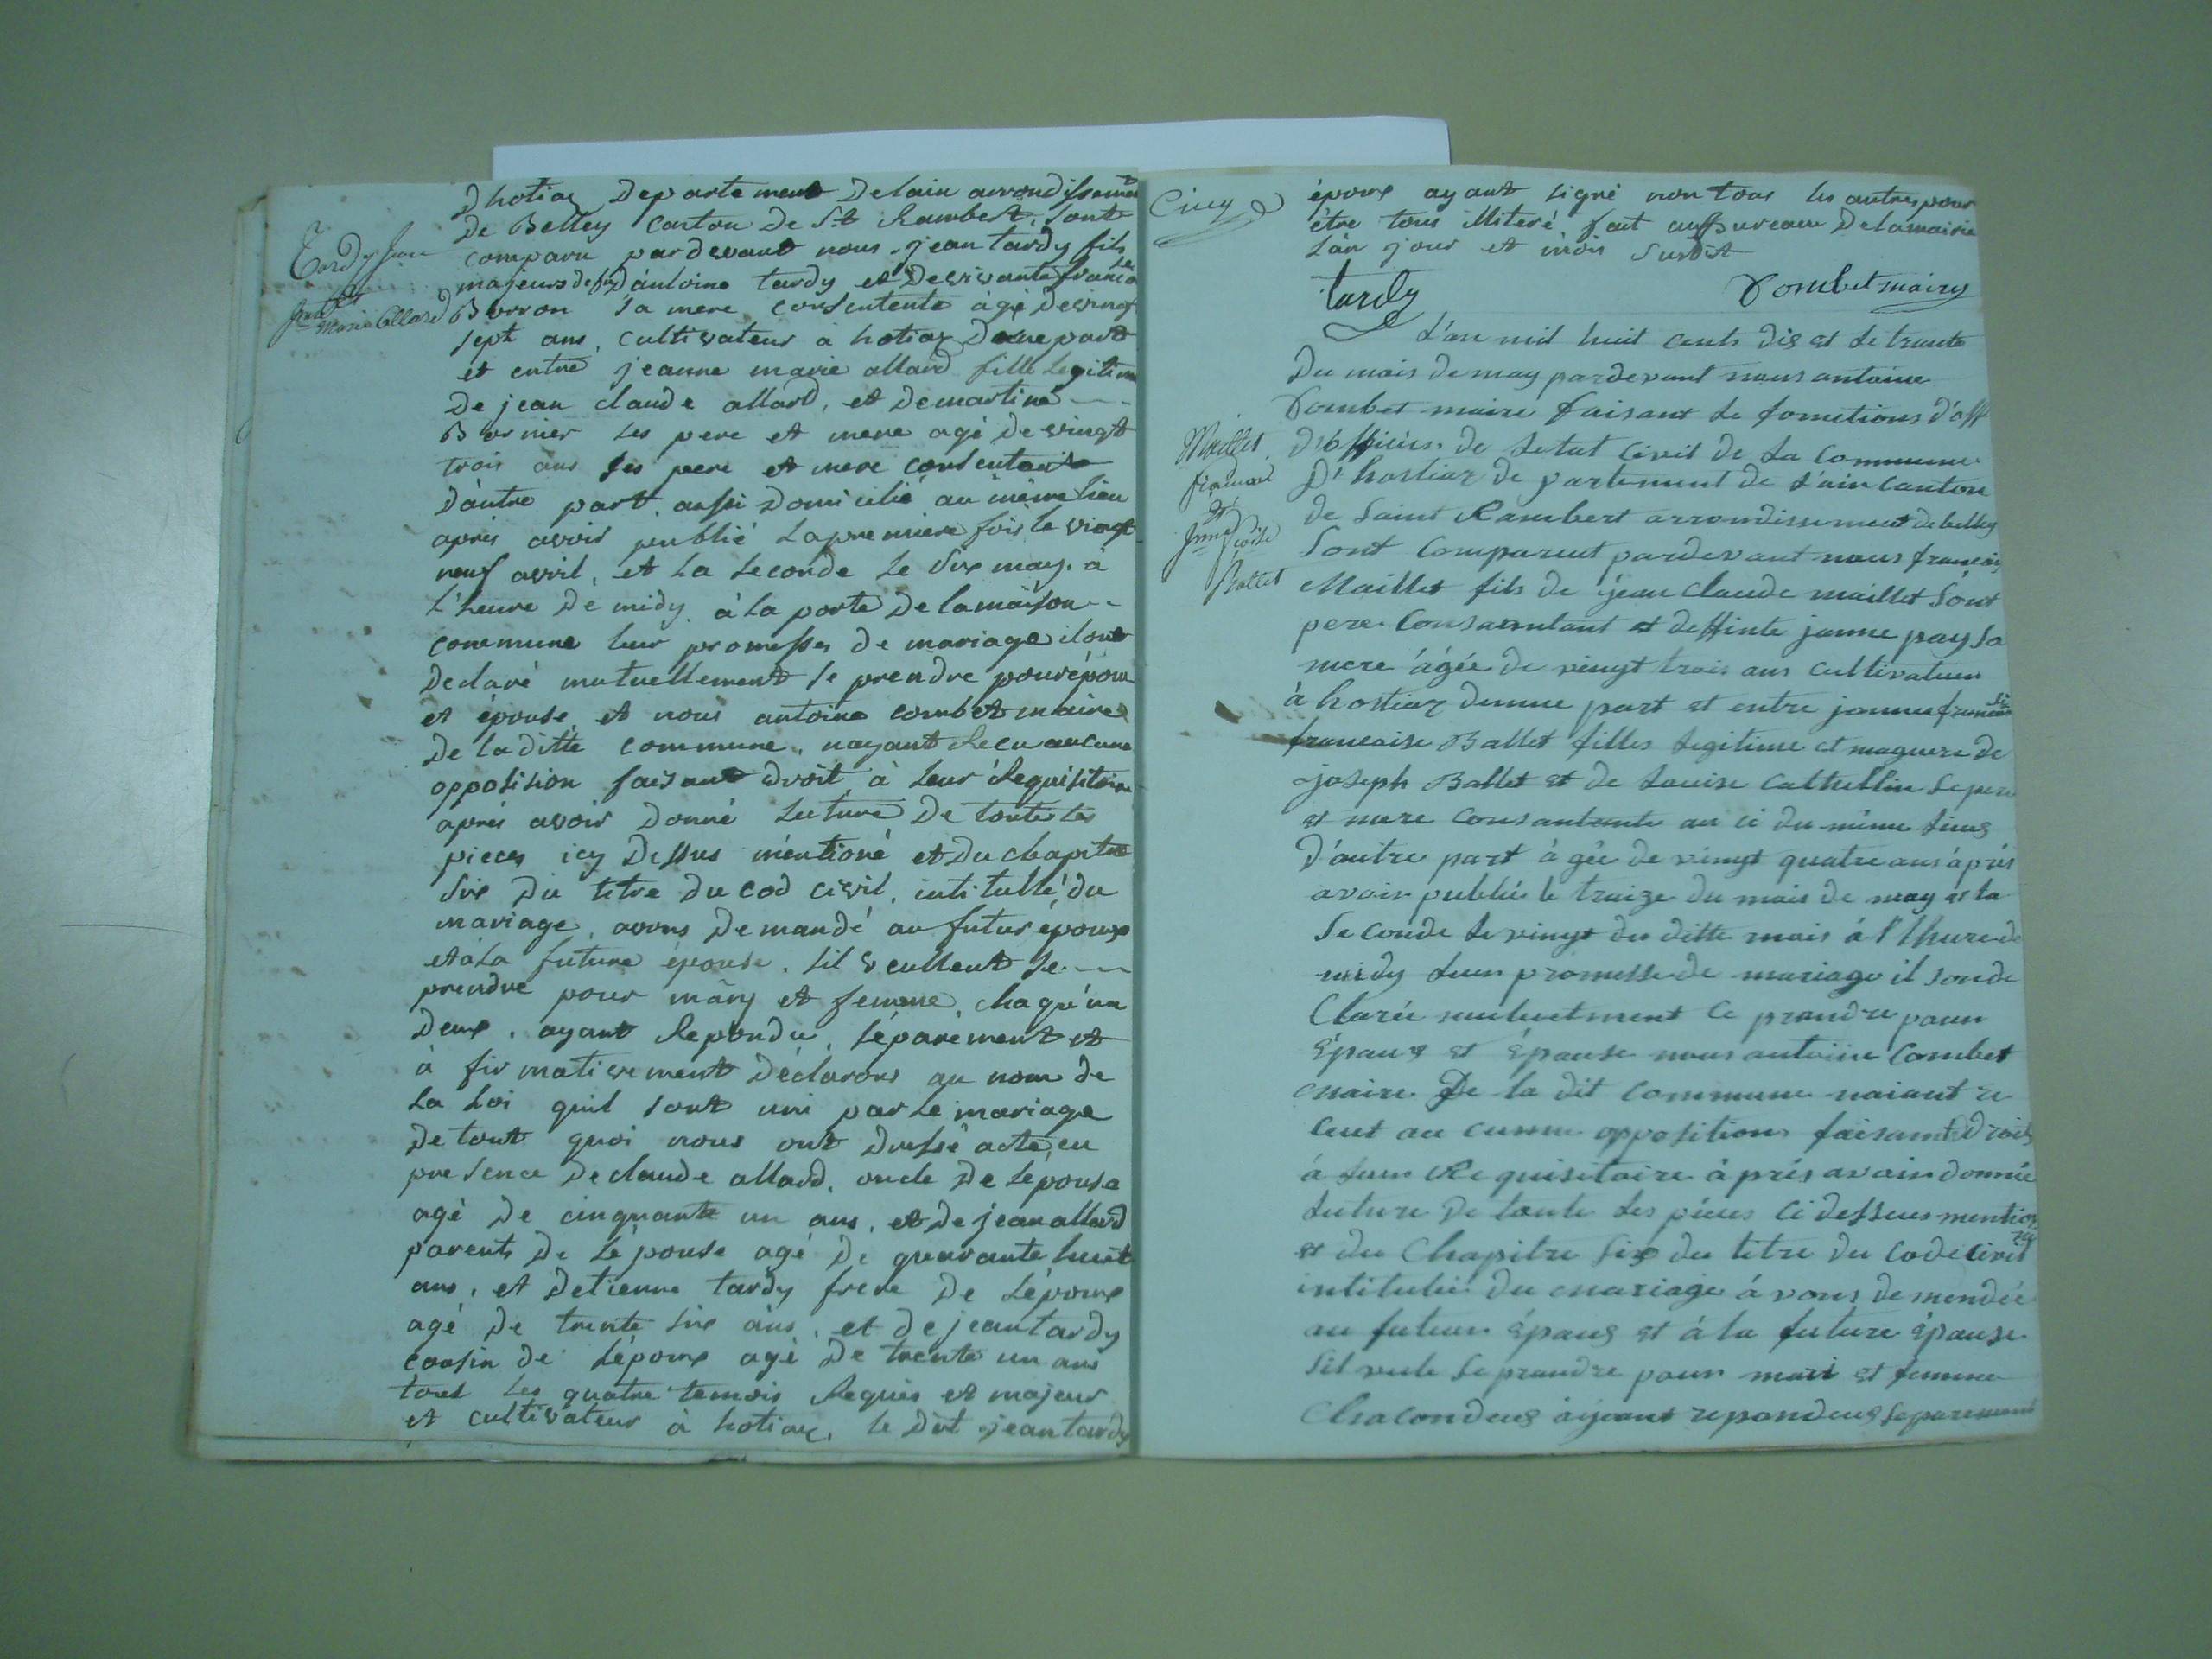 Dhotiaz Departement Delain arrondissement
De Belley Canton De St Rambert, sont
comparu pardevant nous jean tardy fils
majeurs de feu D'antoine tardy et De vivante francoise
Berron sa mere consentente agé De vingt
sept ans, cultivateur a hotiaz Dune part
et entre jeanne marie allard fille Legitime
De jean claude allard, et De martine
Bornier Les pere et mere agé De vingt
trois ans ses pere et mere consentant
D'autre part aussi Domicilié au même Lieu
aprés avoir publié La premiere fois le vingt
neuf avril, et La seconde Le six may. à
L'heure De midy à la porte De la maison
commune leur promesses De mariage il ont
Declaré mutuellement se prendre pour époux
et épouse, et nous antoine combet maire
De laditte commune, nayant Recu aucune
opposision faisant Droit à Leur Requisitoire
aprés avoir Donné Lecture De toute les
pieces icy Dessus mentioné et Du chapitre
six Du titre Du cod civil, intitullé Du
mariage, avons Demandé au futur époux
et à la future épouse, sil veullent se
prendre pour mary et femme, chaqu'un
Deux, ayant Repondu, séparement et
à firmativement Déclarons au nom de
La Loi quil sont uni par Le mariage
De tout quoi nous ont Dressé acte, en
presence De claude allard, oncle De Lépouse
agé De cinquante un ans, et De jean allard
parents De Lépouse agé De quarante huit
ans, et Detienne tardy frere De Lépoux
agé De trente six ans, et De jean tardy
cousin De Lépoux agé De trente un ans
tout Les quatre temois Requis et majeur
et cultivateur à hotiaz, le Dit jean tardy
Tardy Jean
et
Jnne Marie Allard
Cinq
époux ayant signé non tous les autres pour
être tous illiteré, fait au bureau De la mairie
L'an jour et mois susdit
tardy Combet maire
L'an mil huit cents dix et le trante
Du mois de may pardevant nous antoine
Combet maire faisant Le fonctions d'off
d'officier de Letat Civil de La Commune
D'hostiaz de partement de L'ain canton
de Saint Rambert arrondissement de belley
Sont Comparent pardevant nous francois
Maillet fils de jean Claude maillet Sont
pere Consantant et deffinte janne pay Sa
mere agée de vingt trois ans cultivateur
à hostiaz dunne part et entre jeanne
francaise Ballet filles Legitime et mageure de
joseph Ballet et de Louise Cathellin Se pere
et mere Consantante au ci du même Lieux
D'autre part à gée de vingt quatre ans aprés
avoir publié le traize du mois de may et la
Seconde Le vingt du ditte mois à l'hure de
midy Leur promesse de mariage il sonde
Clarée mutuelment Ce prandre pour
Épaux et Épause nous antoine Combet
maire De la dit commune naiant re
Ceut au cunne oppositions faisant Droit
à Leur Re quisitoire à prés avoir donnée
Lecture De toute Les pieces Ci dessus mention
née
et du Chapitre Six du titre du Code Civil
intitulée Du mariage à vons demendée
au futeur Épaux et à la future Épause
Sil veule Se prandre pour mari et femme
Chacondeux aiyant repondeux Separement
Maillet
francois
et
Jnne
Ballet